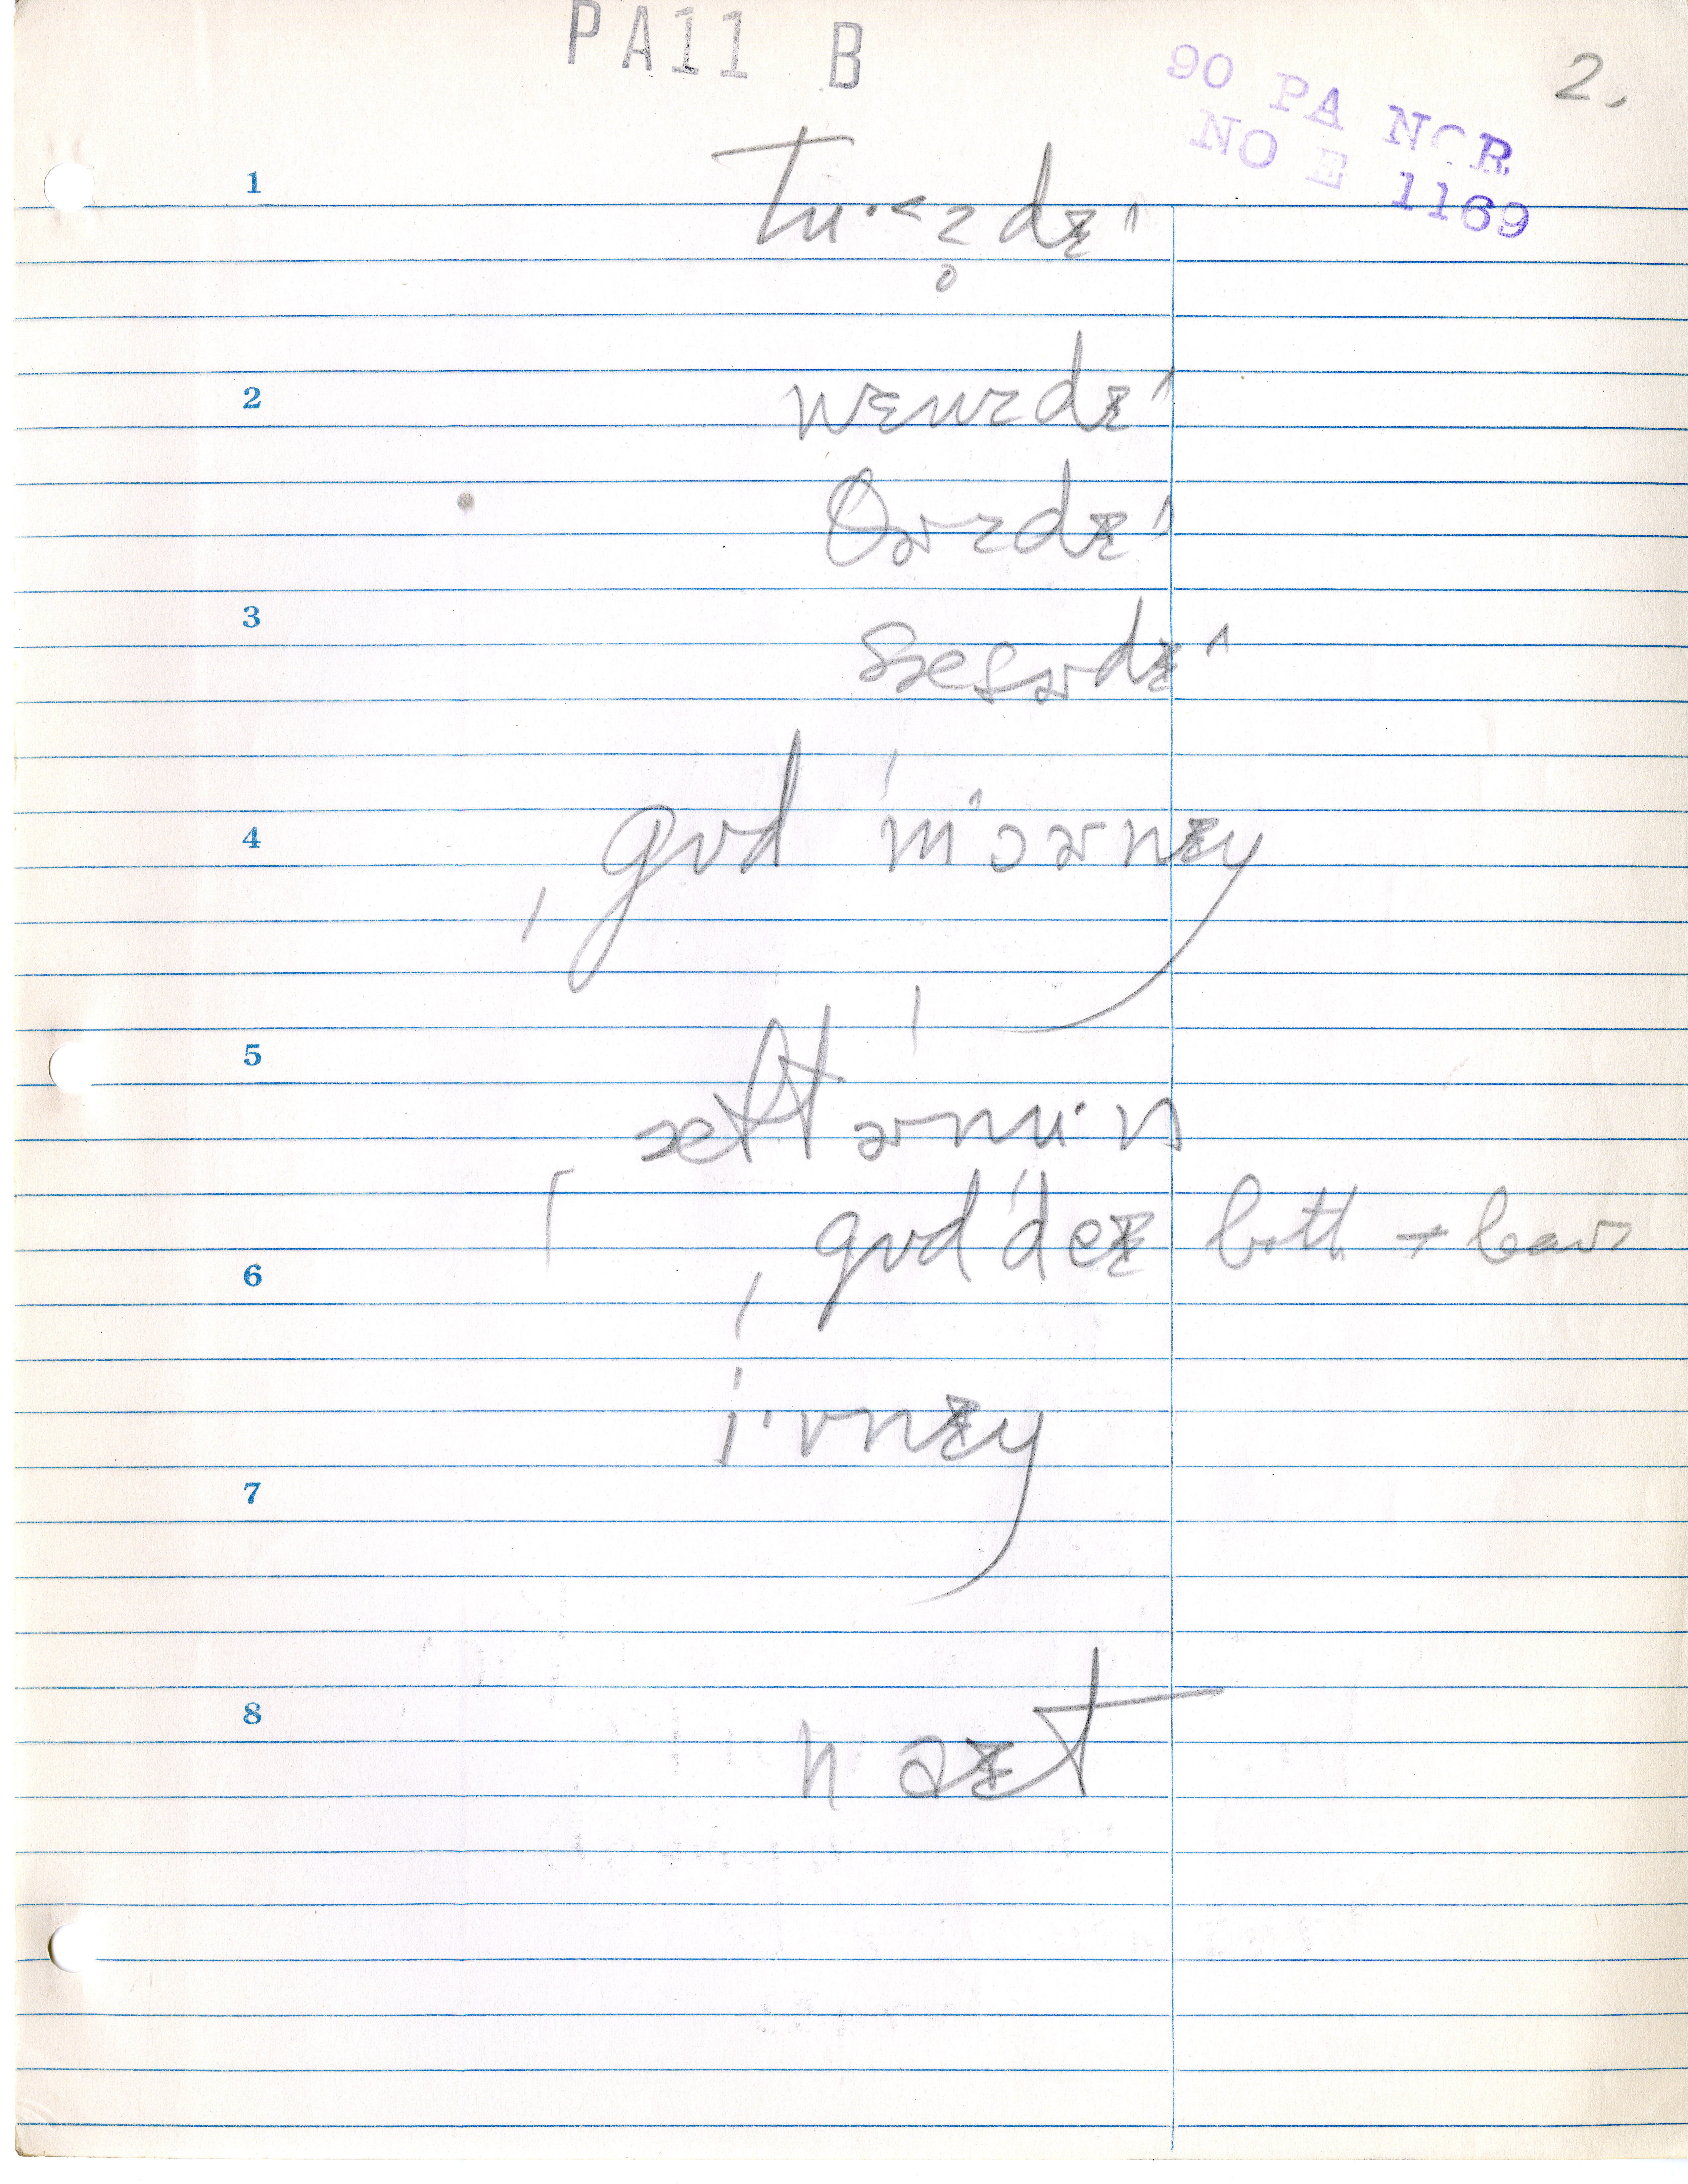 PA11 B
90 PA NOR
NO E 1169
2.
1
tu·˂z̥dɪ^
2
wɛnzdɪ^
θɚzdɪ^
3
sæɾɚdɪ^
4
ˌgʊd ˈmɔ˄ɚnɪŋ
5
æftɚˈnu·n
6
ˌgʊdˈdeɪ both + leav
ˈi·vnɪŋ
7
8
naɪt